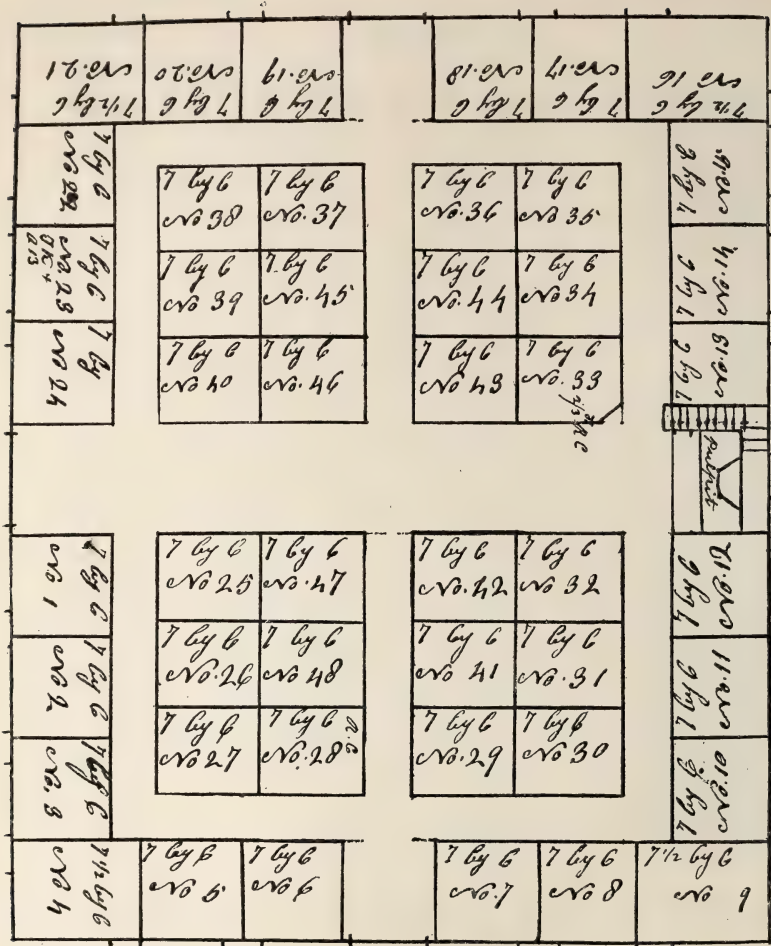 7 1/2 by 6
No. 21
7 by 6
No. 20
7 by 6
No. 19
7 by 6
No. 18
7 by 6
No. 17
7 1/2 by 6
No 16
7 by 6
No 22
7 by 6
No. 23
7 by
No 24
7 by 6
No 38
7 by 6
No. 37
7 by 6
No. 39
7 by 6
No. 45
7 by 6
No 40
7 by 6
No. 46
7 by 6
No. 36
7 by 6
No 35
7 by 6
No. 44
7 by 6
No 34
7 by 6
No 43
7 by 6
No. 33
R C
7 by 6
No. 15
7 by 6
No. 14
7 by 6
No. 13
pulpit
7 by 6
No 1
7 by 6
No 2
7 by 6
No. 3
7 by 6
No 25
7 by 6
No. 47
7 by 6
No. 26
7 by 6
No 48
7 by 6
No 27
7 by 6
No. 28
R. C
7 by 6
No. 42
7 by 6
No 32
7 by 6
No 41
7 by 6
No. 31
7 by 6
No. 29
7 by 6
No 30
7 by 6
No. 12
7 by 6
No. 11
7 by 6
No. 10
7 1/2 by 6
No 4
7 by 6
No 5
7 by 6
No 6
7 by 6
No. 7
7 by 6
No 8
7 1/2 by 6
No 9